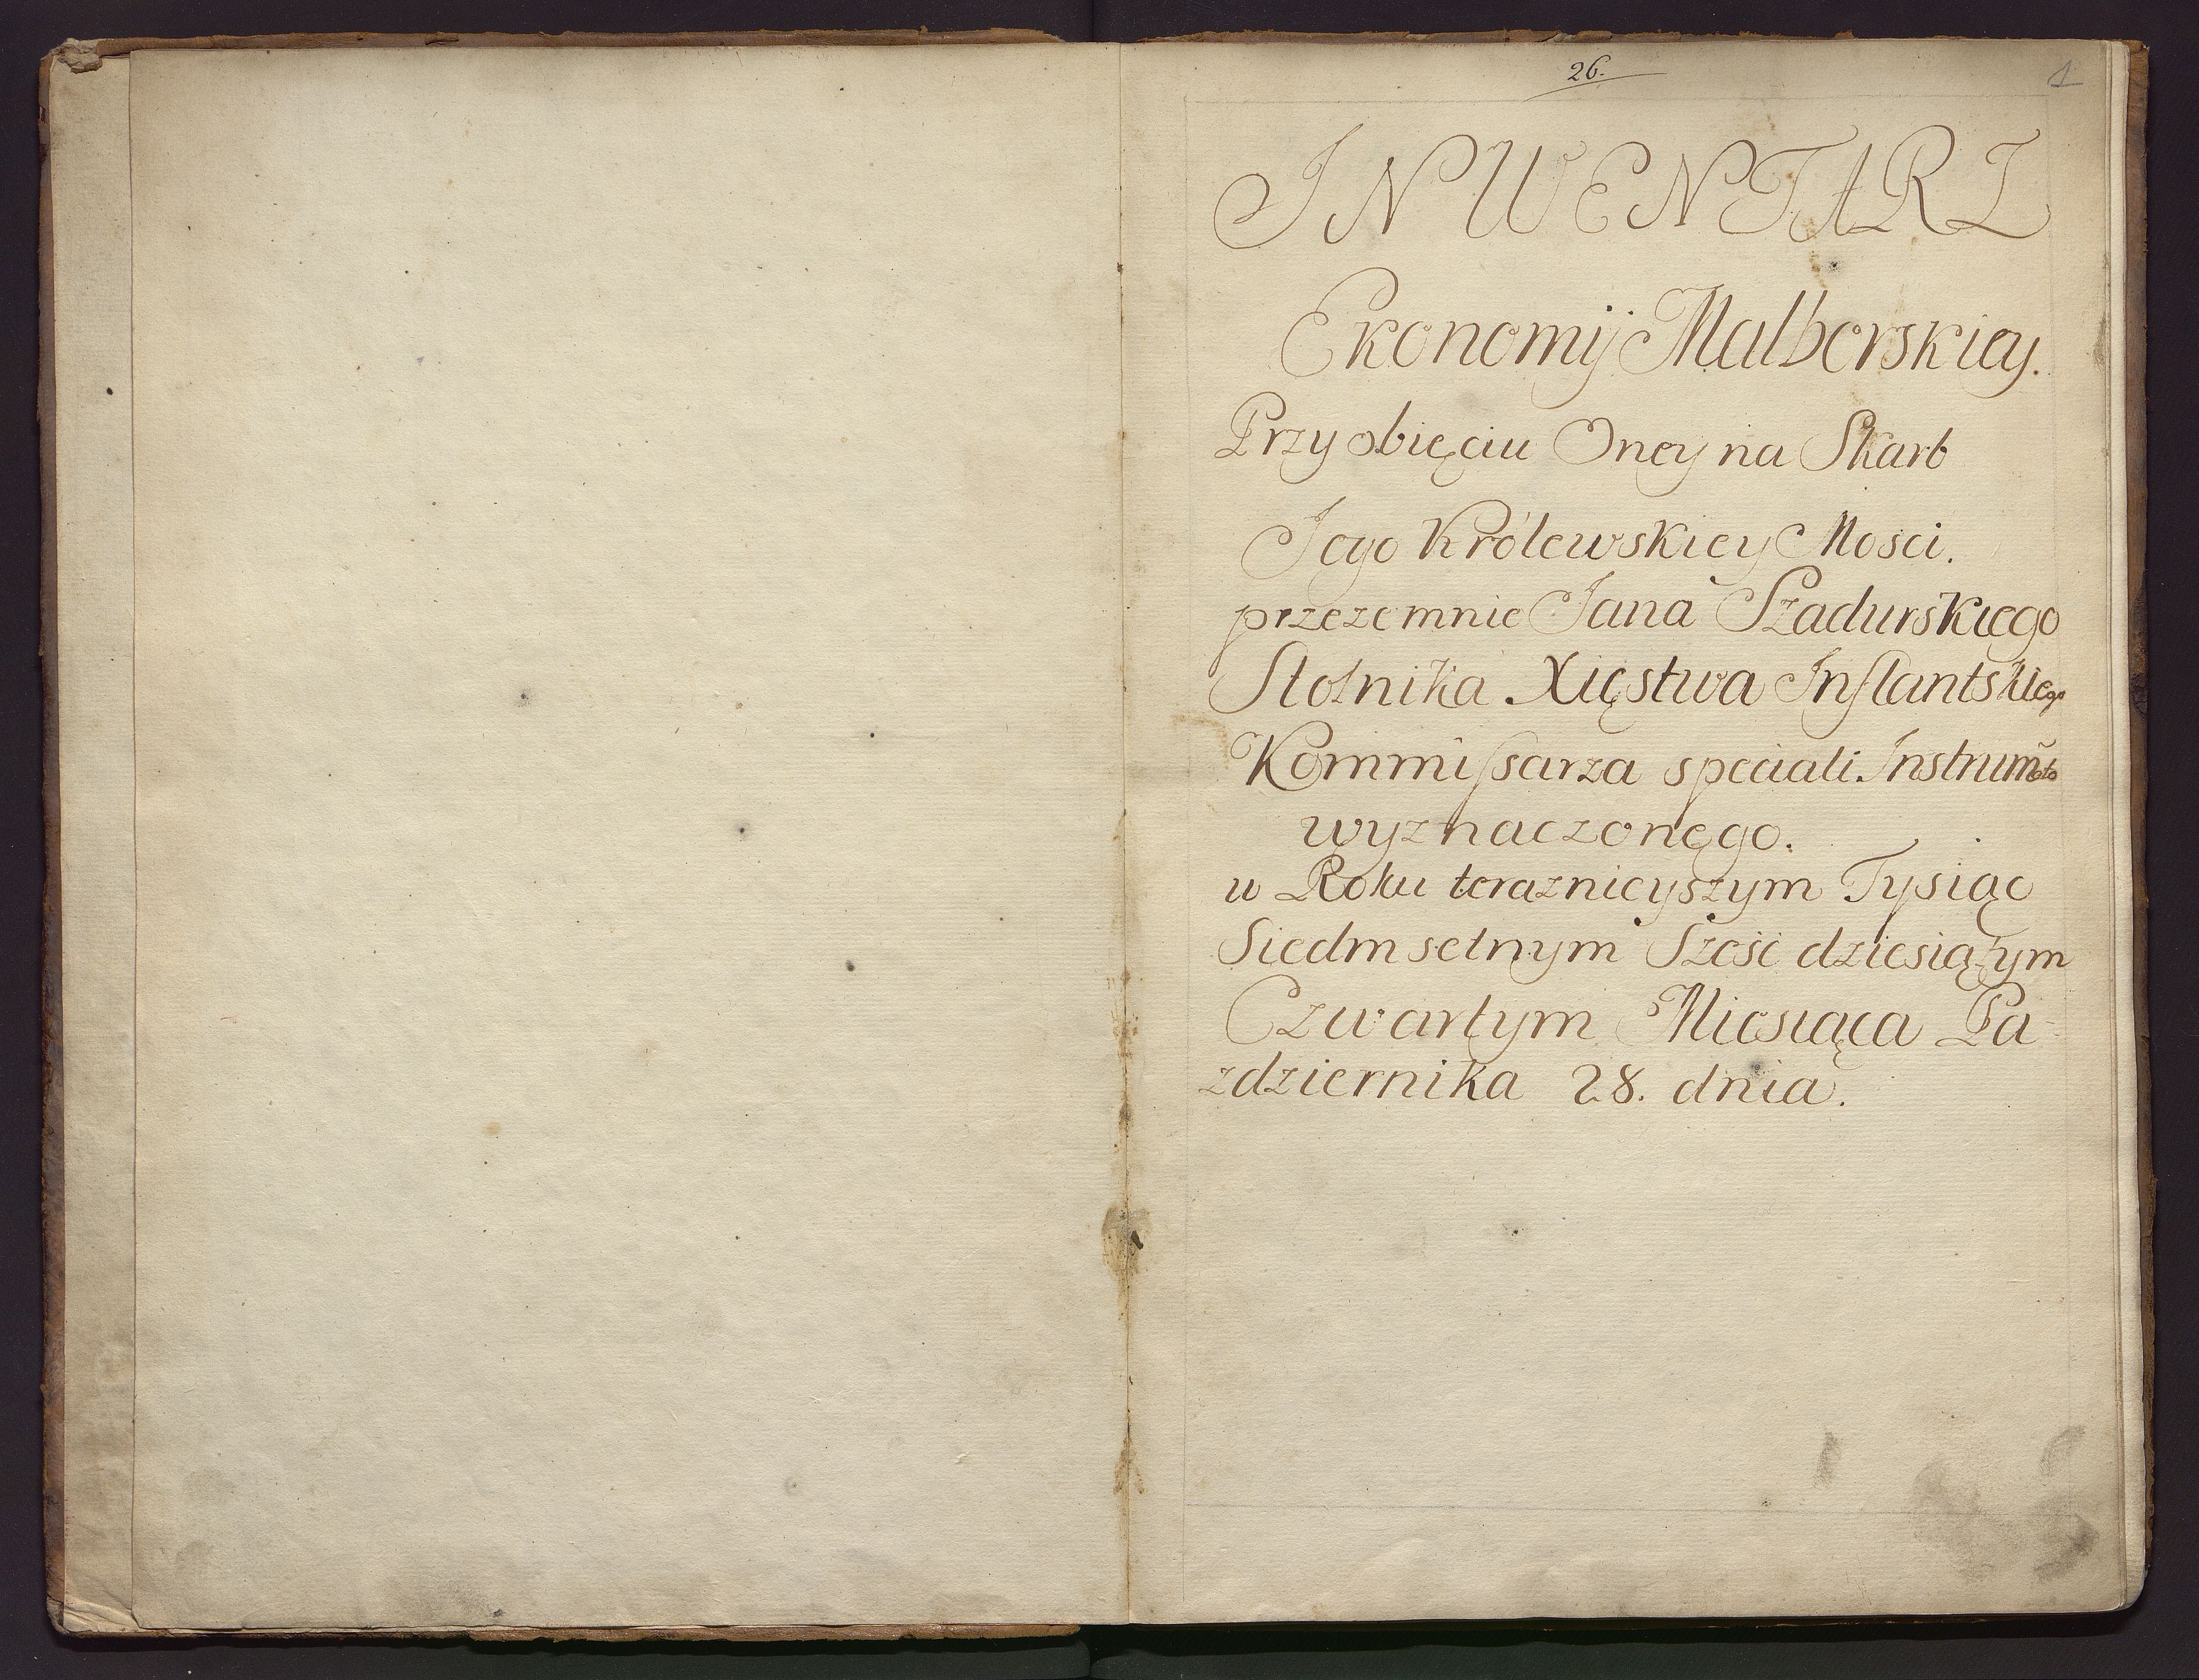 26.
1
INWENTARZ
Ekonomij Malborskiey.
Przy obięciu Oney na Skarb
Jego Królewskiey Mosci.
przezemnie Jana Szadurskiego
Stolnika Xięstwa Inflantskiego
Kommissarza speciali Instrum̃eto
wyznaczonego.
w Roku teraznieyszym Tysiąc
Siedmsetnym Szesć dziesiątym
Czwartym Miesiąca Pa-
zdziernika 28. dnia.